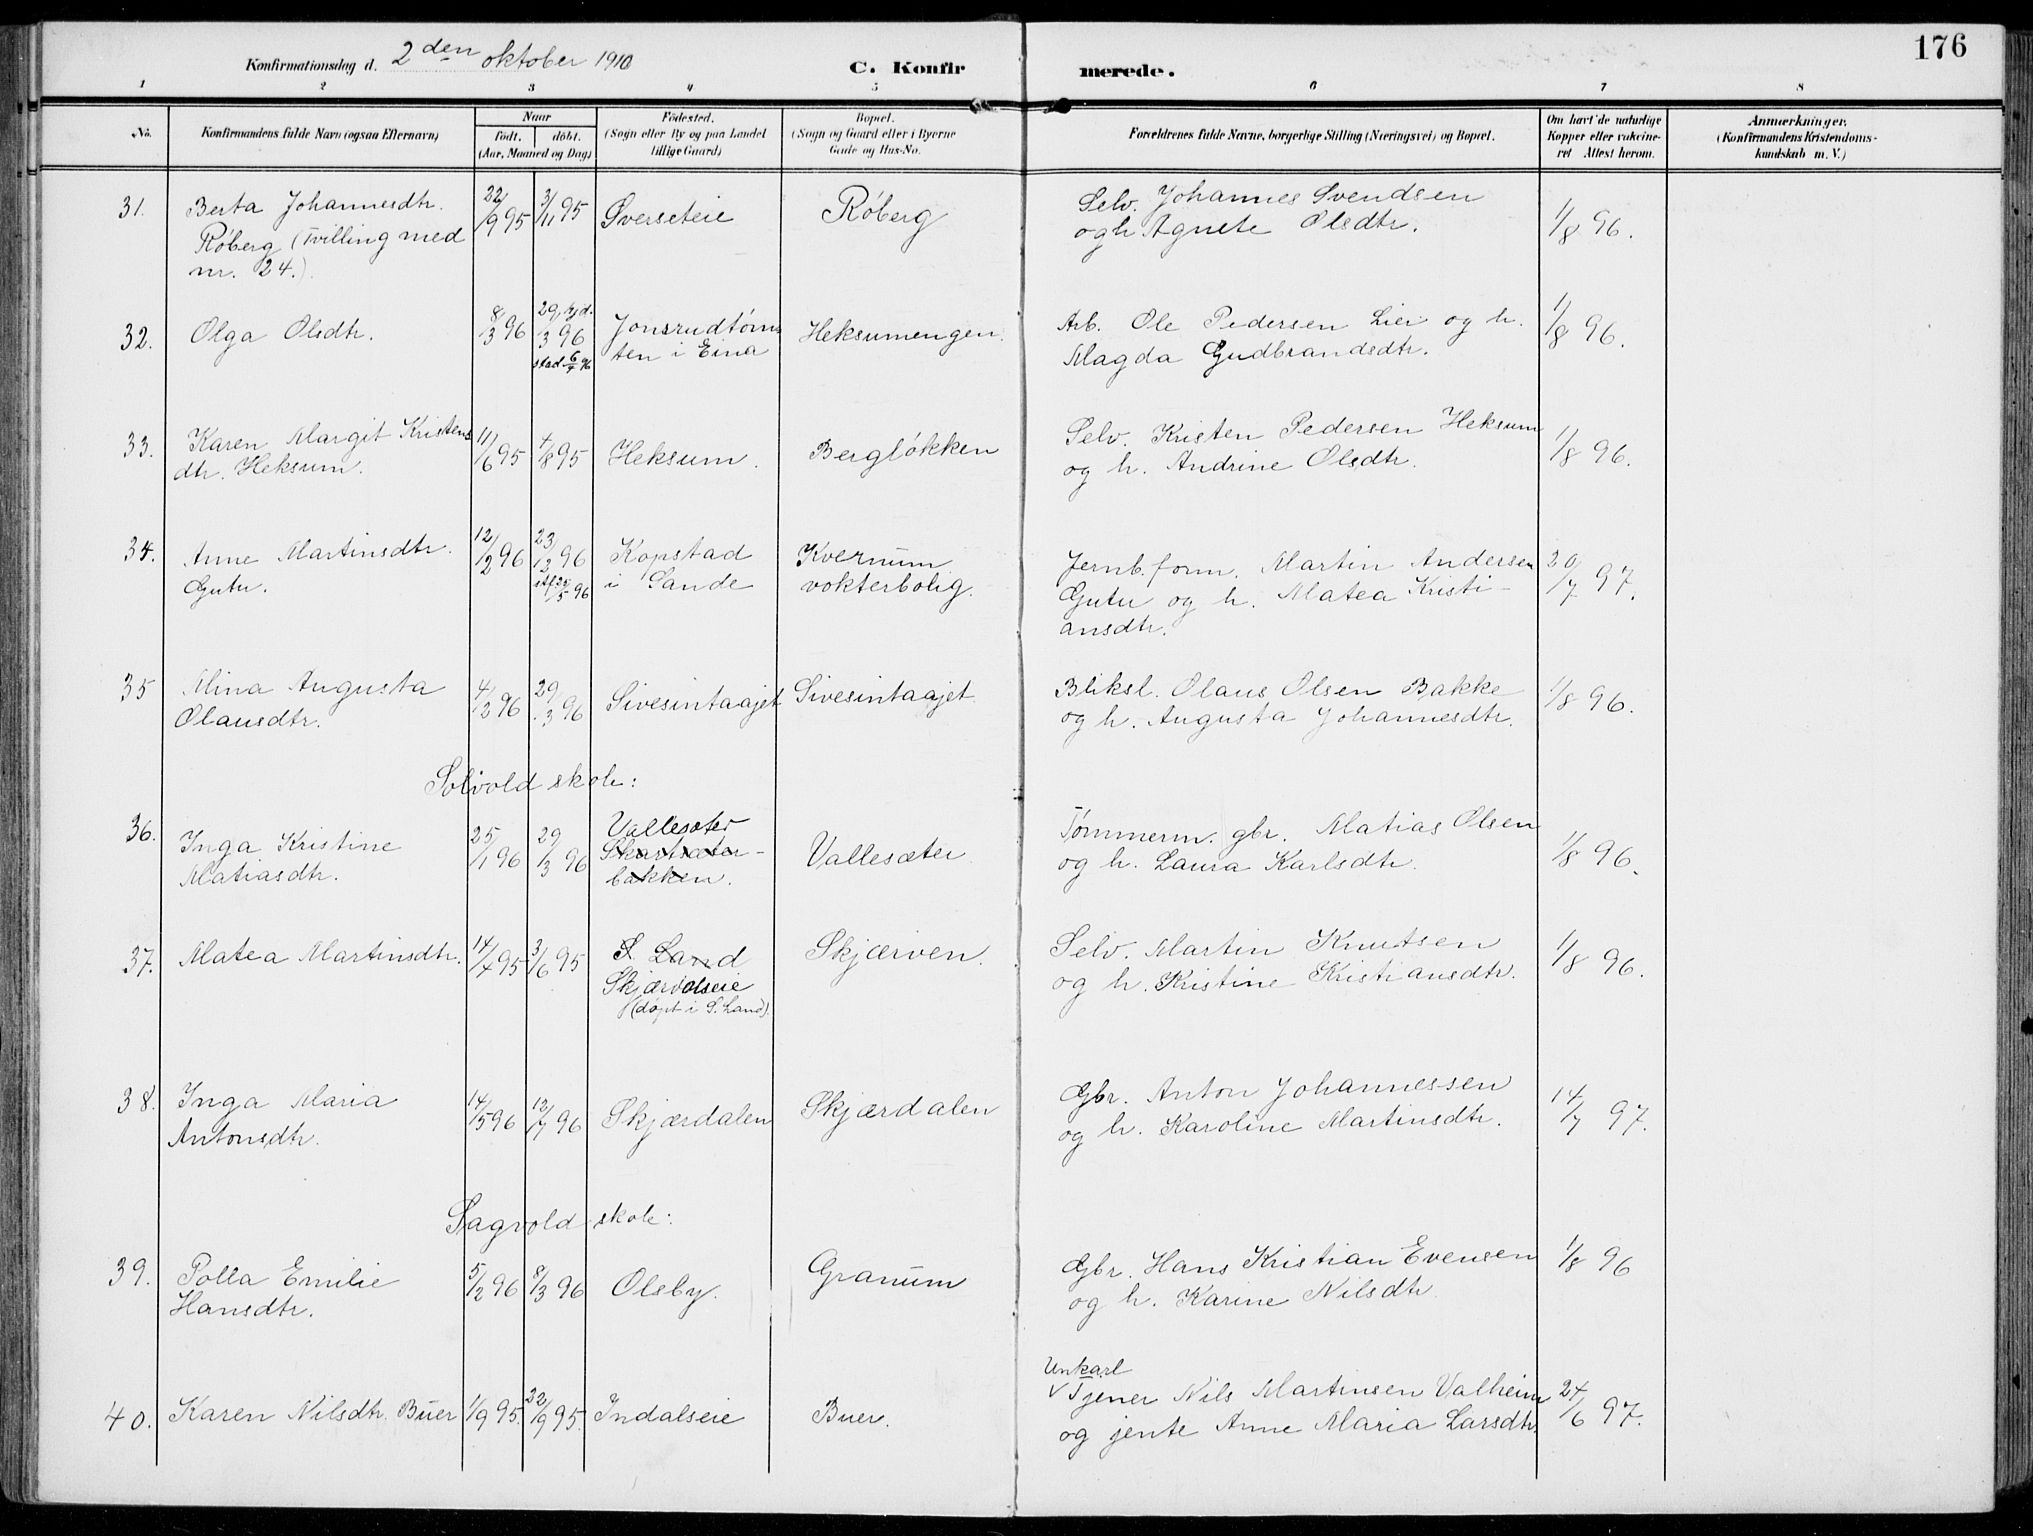 176
Konfirmationsdag d. 2den oktober 1910
C. Konfirmerede.
1 2 3 4 5 6 7 8
No. Konfirmandens fulde Navn (ogsaa Efternavn) Naar født. døbt. (Aar, Maaned og Dag) Fødested. (Sogn eller By og paa Landet tillige Gaard) Bopæl. (Sogn og Gaard eller i Byerne Gade og Hus-No. Forældrenes fulde Navne, borgerlige Stilling (Næringsvei) og Bopæl. Om havt de naturlige Kopper eller vaccineret Attest herom. Anmærkninger. (Konfirmandens Kristendomskundskab m. V.)
31. Berta Johannesdtr. 22/9 95 3/11 95 Sverseteie Røberg Selv. Johannes Svendsen 1/8 96.
Røberg (Tvilling med og h. Agnete Olsdtr.
nr. 24.)
32. Olga Olsdtr. 8/3 96 29/3 96 hjd. Jonsrudtøm Heksumengen. Arb. Ole Pedersen Lier og h. 1/8 96.
stad 6/4 96 ten i Eina Magda Gudbrandsdtr.
33. Karen Margit Kristens 11/6 95 4/8 95 Heksum. Bergløkken Selv. Kristen Pedersen Heksum 1/8 96.
dtr. Heksum. og h. Andrine Olsdtr.
34. Anne Martinsdtr. 12/2 96 23/2 96 Kopstad Kvernum Jernb.form. Martin Andersen 20/7 97.
Gutu. 25/5 96 i Sande vokterbolig. Gutu og h. Matea Kristi-
ansdtr.
35 Mina Augusta 4/2 96 29/3 96 Sivesintaajet Sivesintaajet Bliksl. Olaus Olsen Bakke 1/8 96.
Olausdtr. og h. Augusta Johannesdtr.
Solvold skole:
36. Inga Kristine 25/1 96 29/3 96 Vallesæter Vallesæter Tømmerm. gbr. Matias Olsen 1/8 96.
Matiasdtr. Skartsæter- og h. Laura Karlsdtr.
bakken.
37. Matea Martinsdtr. 14/4 95 3/6 95 S. Land Skjærven. Selv. Martin Knutsen 1/8 96.
Skjærvolseie og h. Kristine Kristiansdtr.
(døpt i S. Land).
38. Inga Maria 14/5 96 12/7 96 Skjærdalen Skjærdalen Gbr. Anton Johannessen 14/7 97.
Antonsdtr. og h. Karoline Martinsdtr.
Sagvold skole:
39. Polla Emilie 5/2 96 8/3 96 Olsby. Granum Gbr. Hans Kristian Evensen 1/8 96
Hansdtr. og h. Karine Nilsdtr.
Unkarl
40. Karen Nilsdtr. Buer 1/9 95. 22/9 95. Indalseie Buer. Tjener Nils Martinsen Valheim 24/6 97.
og jente Anne Maria Larsdtr.